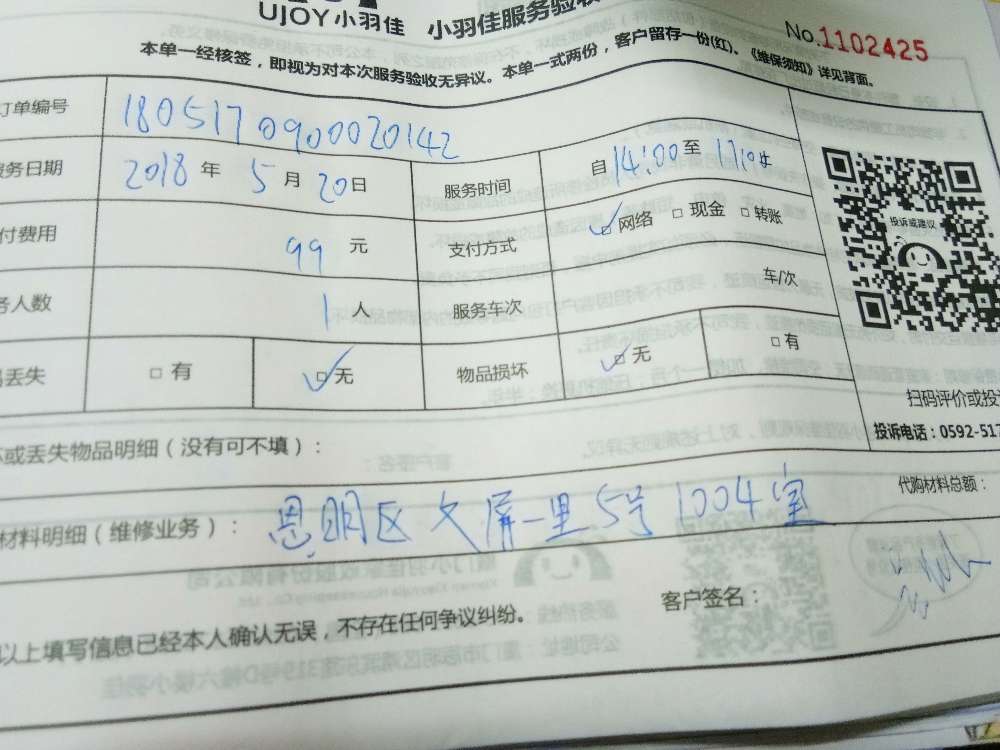 UJOY小羽佳 小羽佳服务验收
No.1102425
本单一经核签，即视为对本次服务验收无异议。本单一式两份，客户留存一份(红)、《维保须知》详见背面。
订单编号 1805170900020142
服务日期 2018 年 5 月 20 日 服务时间 自 14:00 至
付费用 99 元 支付方式 网络 □ 现金 □ 转账
务人数 1 人 服务车次 车/次
丢失 □ 有 □ 无 物品损坏 □ 无 □ 有
投诉或建议
扫码评价或投
投诉电话：0592-517
或丢失物品明细（没有可不填）：
代购材料总额：
材料明细（维修业务）： 思明区文屏一里5号1004室
客户签名：
以上填写信息已经本人确认无误，不存在任何争议纠纷。